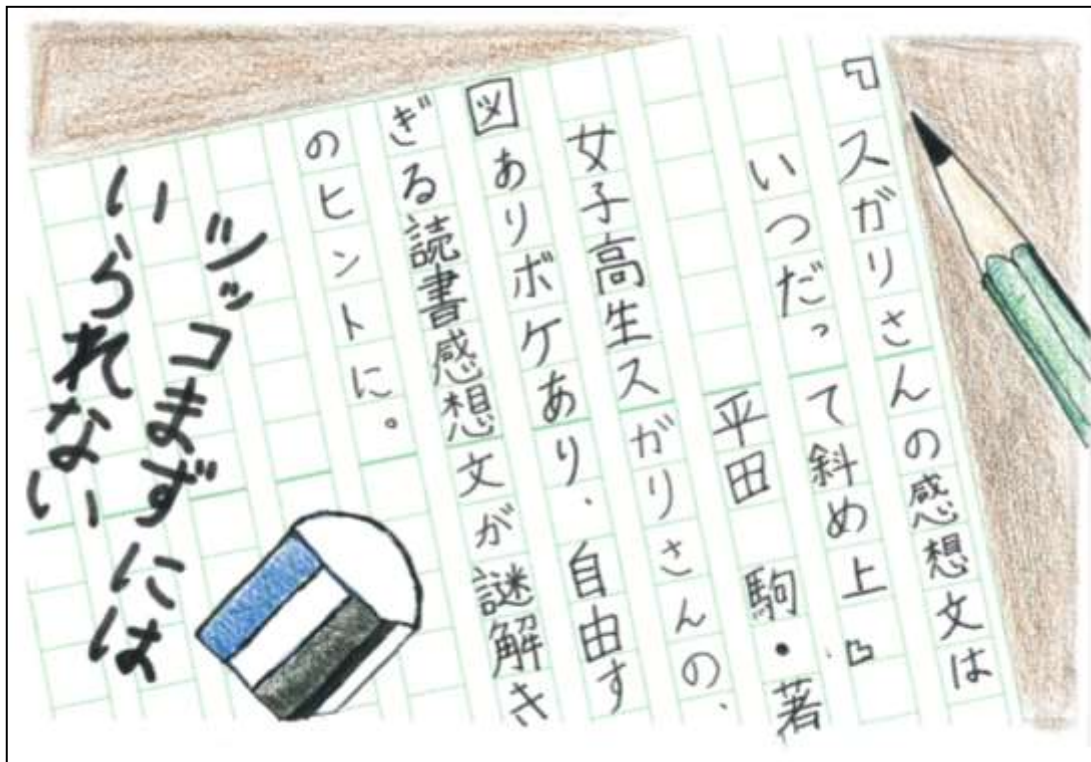 『スガリさんの感想文は
いつだって斜め上』
平田 駒・著
女子高生スガリさんの、
図ありボケあり、自由す
ぎる読書感想文が謎解き
のヒントに。
ツッコまずには
いられない